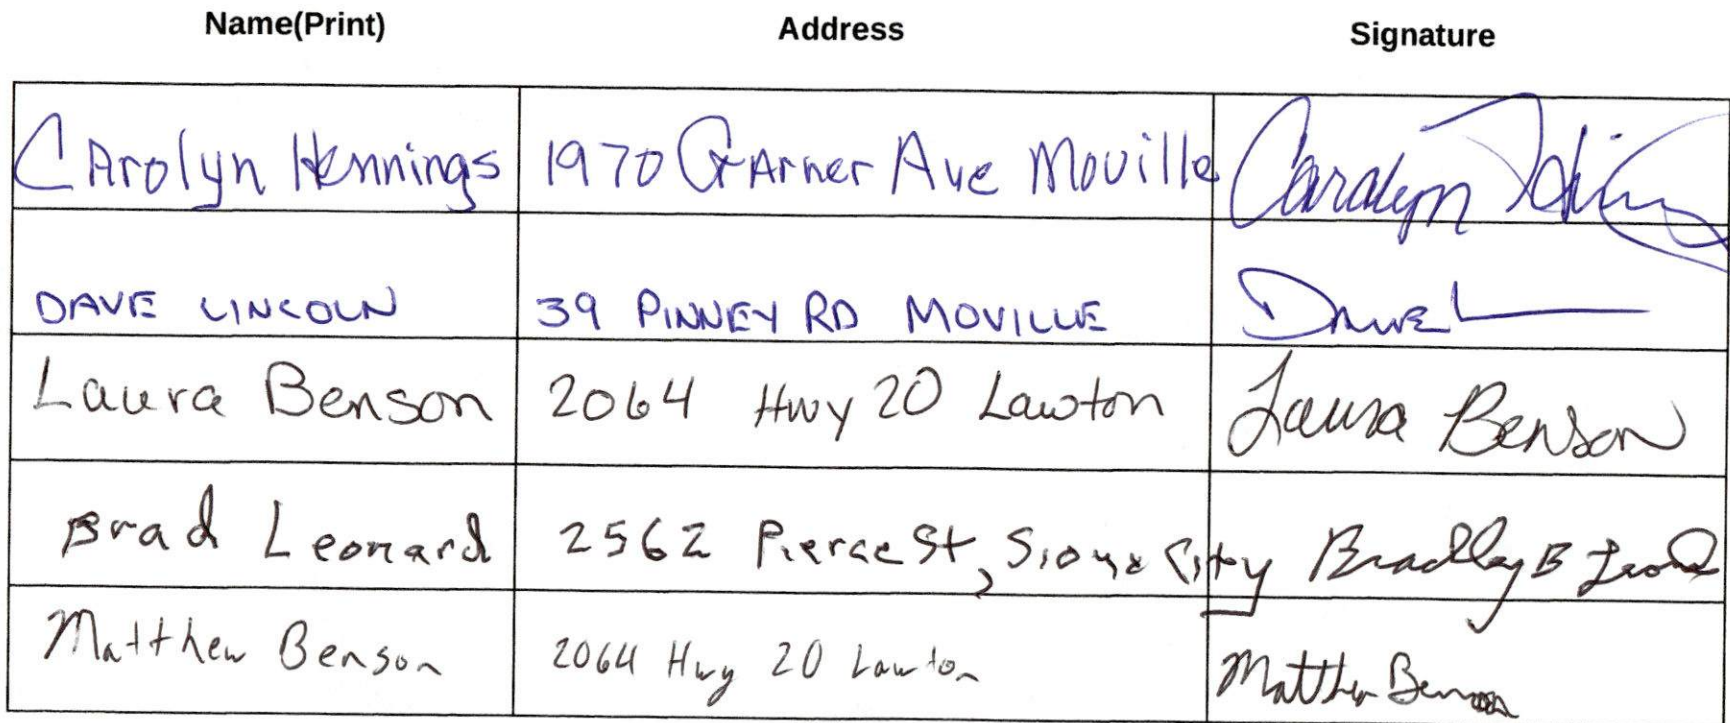 Name(Print) Address Signature
Carolyn Hennings 1970 Garner Ave Moville Carolyn
DAVE LINCOLN 39 PINNEY RD MOVILLE Dave L
Laura Benson 2064 Hwy 20 Lawton Laura Benson
Brad Leonard 2562 Pierce St, Sioux City Bradley B Leonard
Matthew Benson 2064 Hwy 20 Lawton Matthew Benson